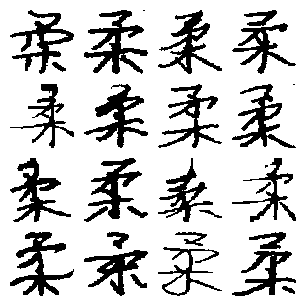 柔柔柔柔
柔柔柔柔
柔柔柔柔
柔柔柔柔